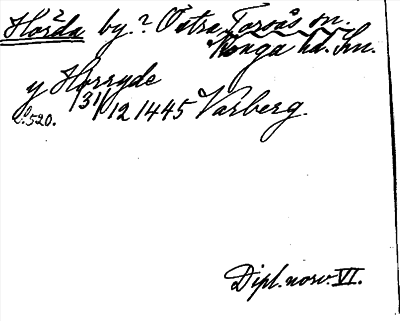 Horda by? Östra Torsås sn.
Konga hd. Sm.
y Horryde
31/12 1445 Varberg.
L. 520.
Dipl. norv. VI.